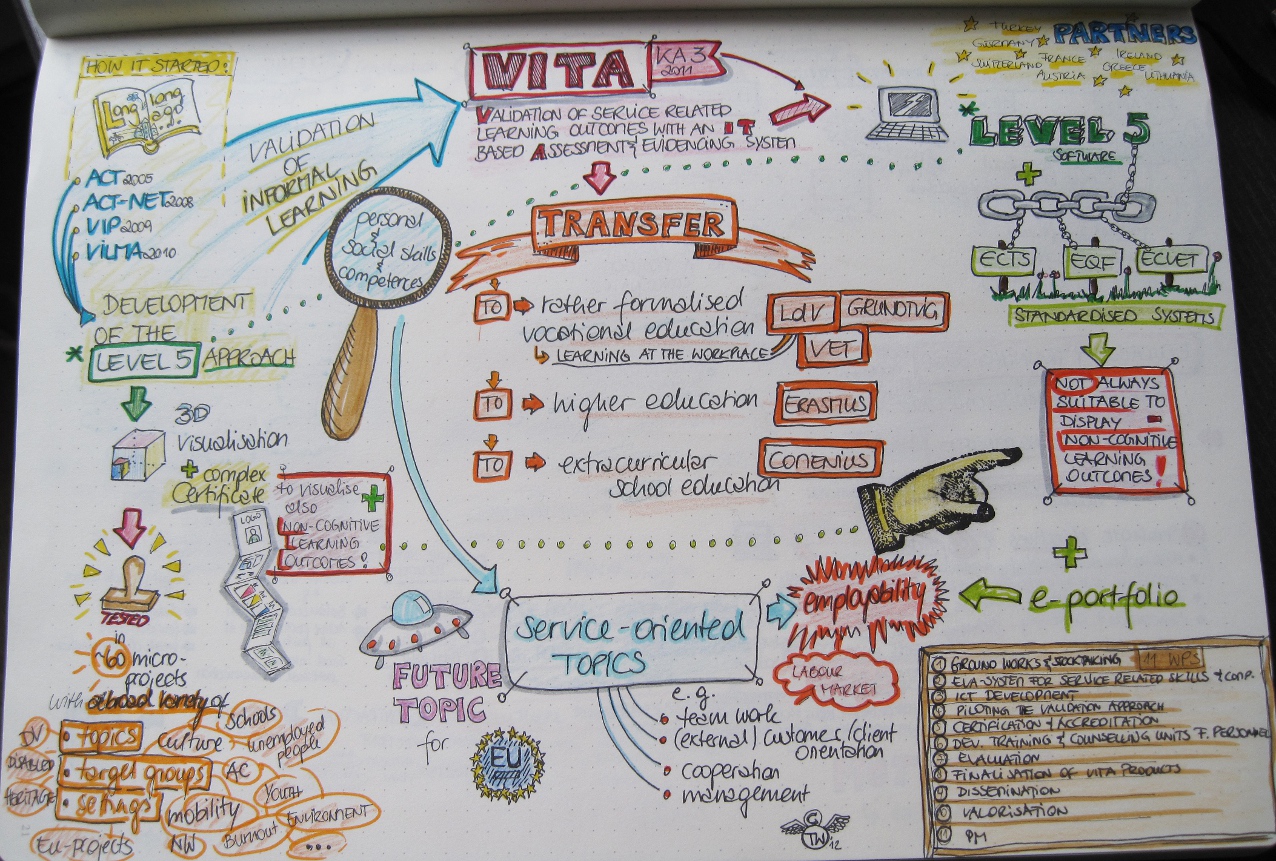 HOW IT STARTED:
Long, long ago...
ACT 2005
ACT-NET 2008
VIP 2009
VILMA 2010
DEVELOPMENT
OF THE
* LEVEL 5 APPROACH
3D
Visualisation
+ complex
Certificate
LOGO
to visualise
also
NON-COGNITIVE
LEARNING
OUTCOMES!
TESTED
in
~60 micro-
projects
with a broad variety of
• topics
• target groups
• settings
Schools
culture
unemployed
people
DV
DISABLED
HERITAGE
AC
YOUTH
mobility
ENVIRONMENT
EU-projects
NW
Burnout
...
VALIDATION
OF
INFORMAL
LEARNING
personal
&
social skills
&
competences
VITA
KA3
2011
VALIDATION OF SERVICE RELATED
LEARNING OUTCOMES WITH AN IT
BASED ASSESSMENT & EVIDENCING SYSTEM
TRANSFER
TO rather formalised
vocational education
LEARNING AT THE WORKPLACE
LdV
GRUNDTVIG
VET
TO higher education
ERASMUS
TO extracurricular
school education
COMENIUS
FUTURE
TOPIC
for
EU
SERVICE-ORIENTED
TOPICS
e.g.
• team work
• (external) customer/client
orientation
• cooperation
• management
employability
LABOUR
MARKET
TW
12
PARTNERS
TURKEY
GERMANY
IRELAND
SWITZERLAND
FRANCE
GREECE
AUSTRIA
LITHUANIA
* LEVEL 5
SOFTWARE
+
ECTS
EQF
ECVET
STANDARDISED SYSTEMS
NOT ALWAYS
SUITABLE TO
DISPLAY
NON-COGNITIVE
LEARNING
OUTCOMES!
+
e-portfolio
11 WPS
1 GROUND WORKS & STOCKTAKING
2 EVA-SYSTEM FOR SERVICE RELATED SKILLS & COMP.
3 ICT DEVELOPMENT
4 PILOTING THE VALIDATION APPROACH
5 CERTIFICATION & ACCREDITATION
6 DEV. TRAINING & COUNSELLING UNITS F. PERSONNEL
7 EVALUATION
8 FINALISATION OF VITA PRODUCTS
9 DISSEMINATION
10 VALORISATION
11 PM